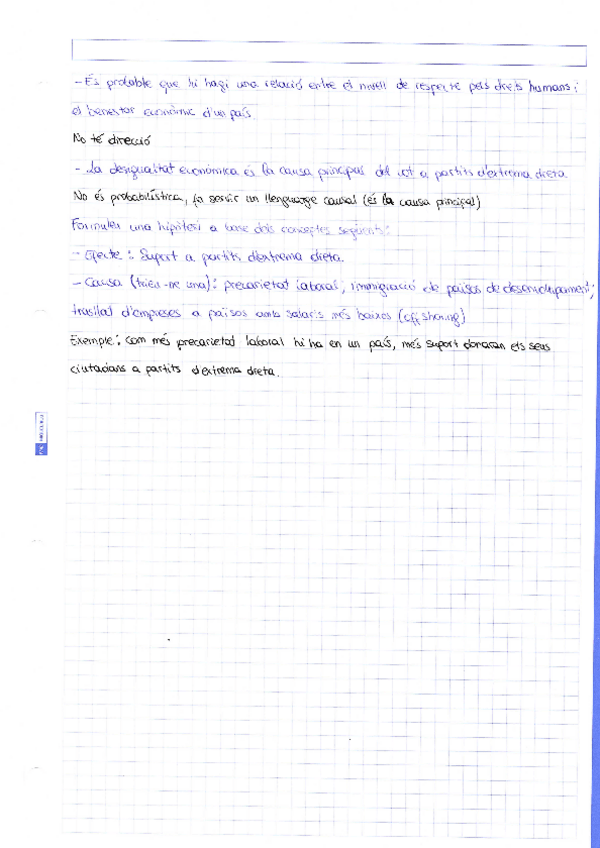 - És probable que hi hagi una relació entre el nivell de respecte pels drets humans i
el benestar econòmic d'un país.
No té direcció
- La desigualtat econòmica és la causa principal del vot a partits d'extrema dreta.
No és probabilística, fa servir un llenguatge causal (és la causa principal)
Formuleu una hipòtesi a base dels conceptes següents:
- Efecte: Suport a partits d'extrema dreta.
- Causa (trieu-ne una): precarietat laboral; immigració de països de desenvolupament;
trasllat d'empreses a països amb salaris més baixos (offshoring)
Exemple: Com més precarietat laboral hi ha en un país, més suport donaran els seus
ciutadans a partits d'extrema dreta.